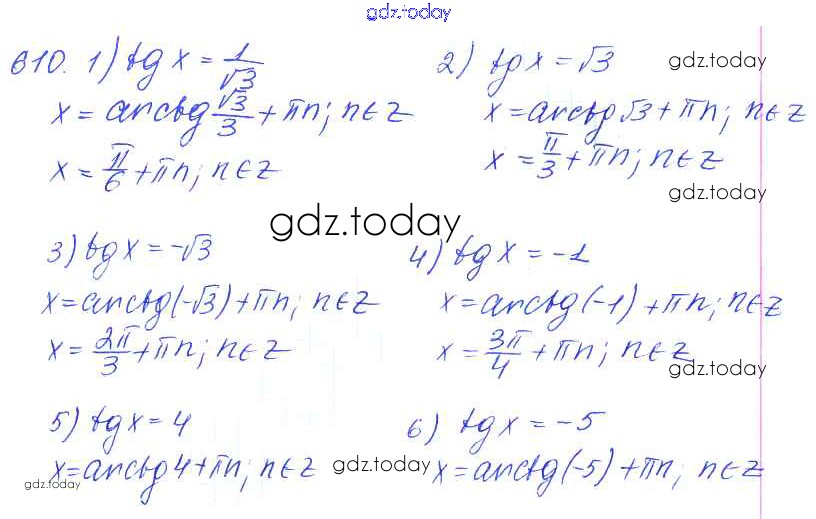 gdz.today
610. 1) tg x = 1/√3
x = arctg √3/3 + πn; n∈Z
x = π/6 + πn; n∈Z
2) tg x = √3
gdz.today
x = arctg √3 + πn; n∈Z
x = π/3 + πn; n∈Z
gdz.today
gdz.today
3) tg x = -√3
x = arctg(-√3) + πn; n∈Z
x = 2π/3 + πn; n∈Z
4) tg x = -1
x = arctg(-1) + πn; n∈Z
x = 3π/4 + πn; n∈Z
gdz.today
5) tg x = 4
x = arctg 4 + πn; n∈Z
gdz.today
6) tg x = -5
x = arctg(-5) + πn; n∈Z
gdz.today